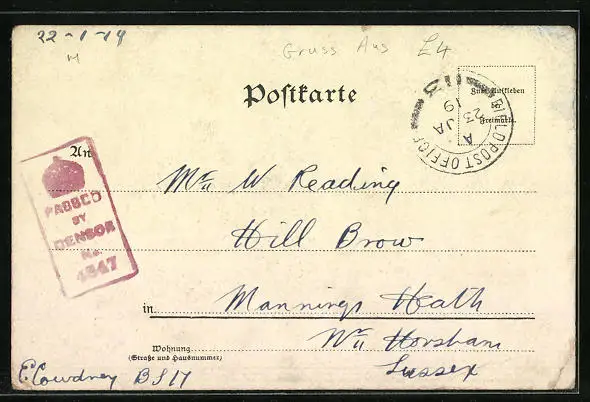 22-1-19
M
Gruss Aus £4
Postkarte
Zum Aufkleben
der
Freimarke.
FIELD POST OFFICE
A
JA
23
19
An
PASSED
BY
CENSOR
No.
4847
Mrs W Reading
Hill Brow
in Mannings Heath
Nr Horsham
Sussex
Wohnung
(Straße und Hausnummer)
E Cowdney